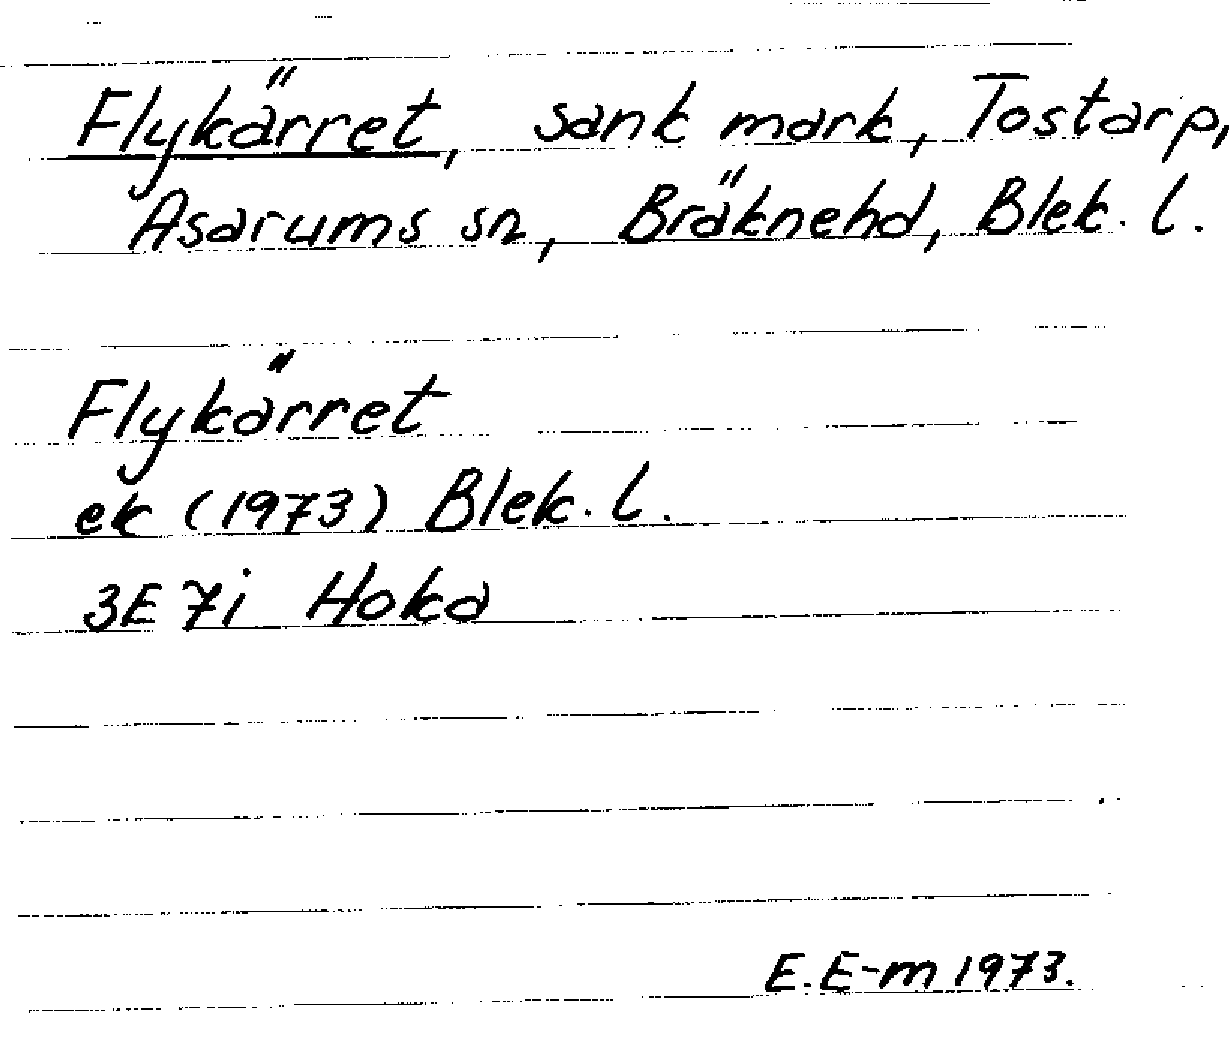 Flykärret, sank mark, Tostarp,
Asarums sn, Bräknehd, Blek. l.
Flykärret
ek (1973) Blek. l.
3E 7i Hoka
E. E-m 1973.